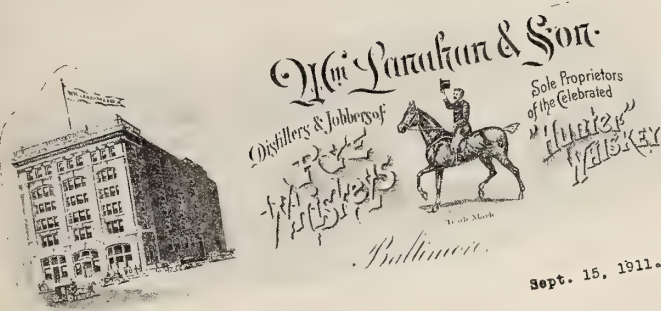 Wm Lanahan & Son.
Distillers & Jobbers of
Whiskeys
Sole Proprietors
of the Celebrated
"Hunter"
Whiskey
Trade Mark
Baltimore.
Sept. 15, 1911.